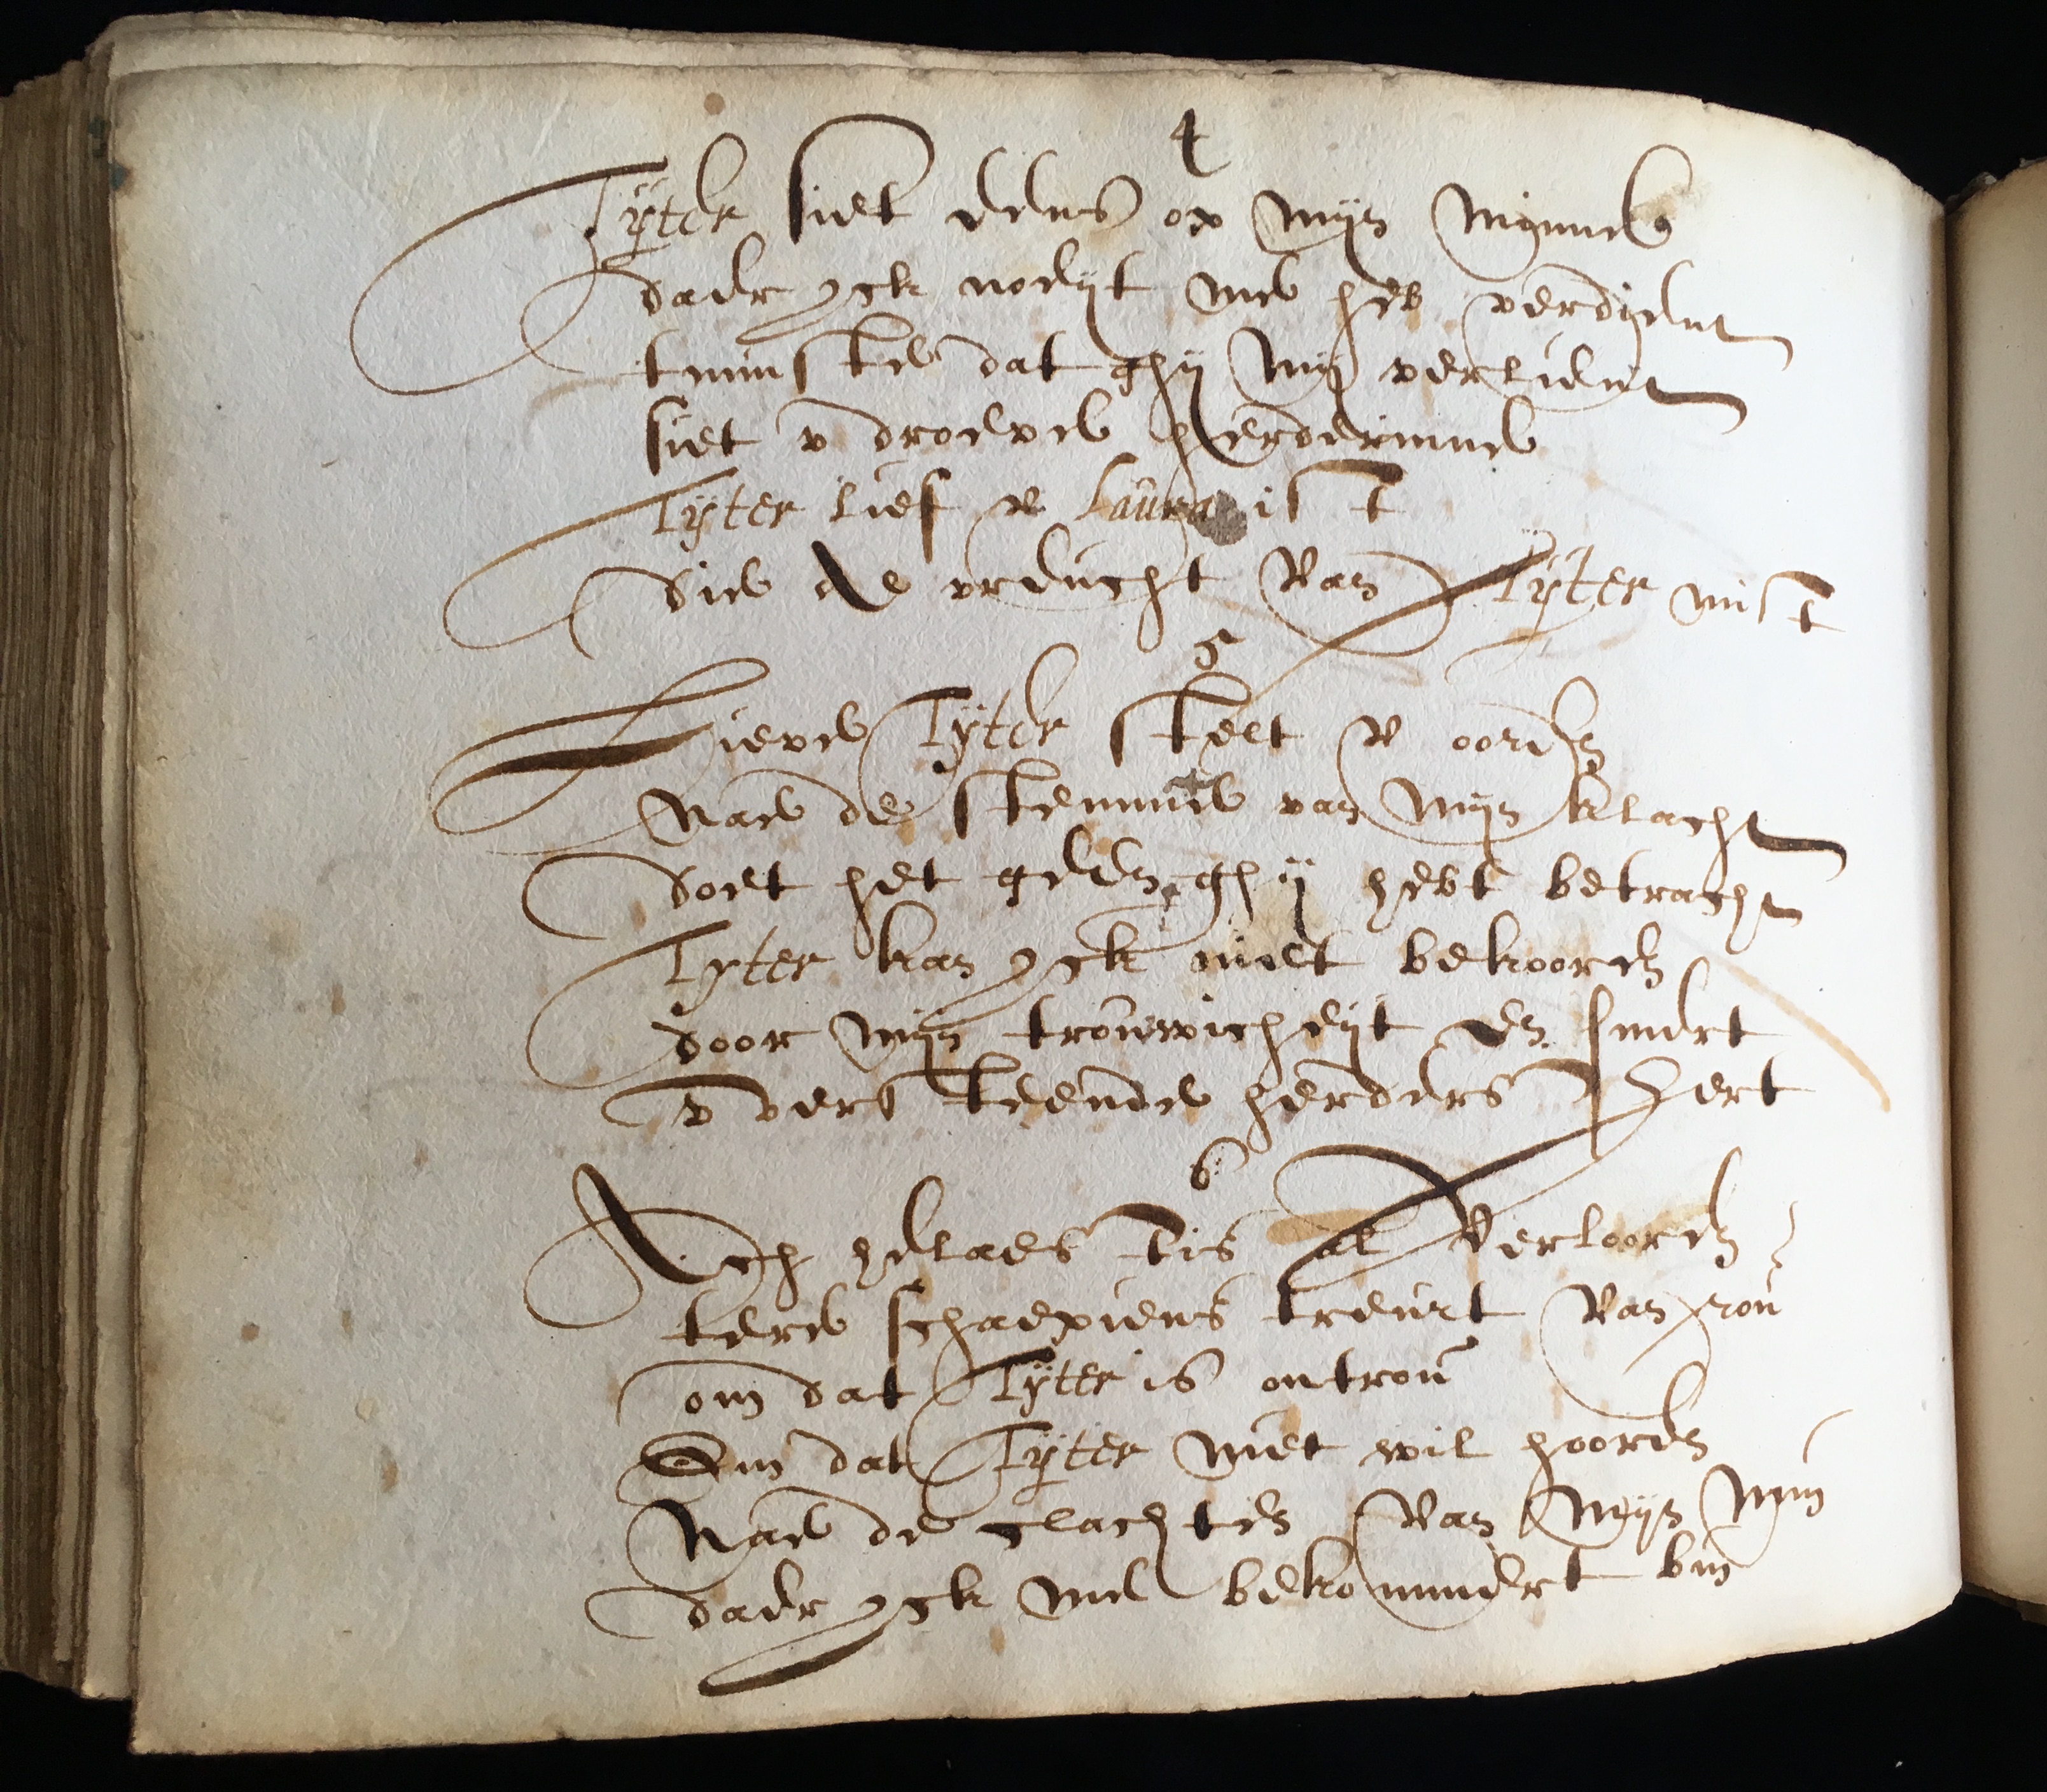 4
Tÿter siet eens op mijn minne
daer yck noeijt me heb verdient
tminste dat ghij mij verlient
siet v droeve herderinne
Tÿter lief v Laura ist
die de vreucht van Tÿter mist
5
Lieve Tÿter stelt v ooren
Nae de stemme van mijn klacht
doet het geen ghij hebt betracht
Tyter kan yck niet bekooren
door mijn trouwicheijt en smert
v versteende herders hert
6
Ach helaes tis al verlooren
tere schaepiens treurt van rou
om dat Tÿter is ontrou
Om dat Tÿter niet wil hooren
Nae de clachten van mijn min
daer yck me bekommert bin